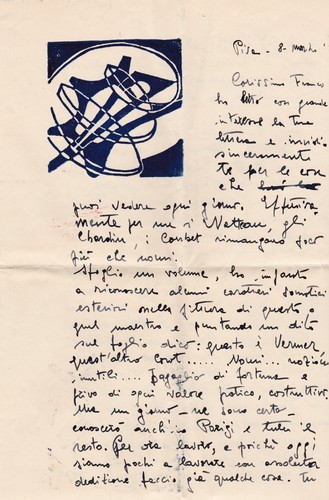 Pisa - 8 - marzo
Carissimo Franco
ho letto con grande
interesse la tua
lettera e invidio
sinceramente
te per le cose
che
puoi vedere ogni giorno. Effettiva
mente per me i Watteau, gli
Chardin, i Courbet rimangono poco
più che nomi.
Sfoglio un volume, ho imparato
a riconoscere alcuni caratteri somatici
esteriori nella pittura di questo o
quel maestro e puntando un dito
sul foglio dico: questo è Vermer
quest'altro Corot..... Nomi... nozioni
inutili..... bagaglio di fortuna e
privo di ogni valore pratico, costruttivo,
Ma un giorno ne sono certo
conoscerò anch'io Parigi e tutto il
resto. Per ora lavoro, e poichè oggi
siamo pochi a lavorare con assoluta
dedizione faccio già qualche cosa. Tu